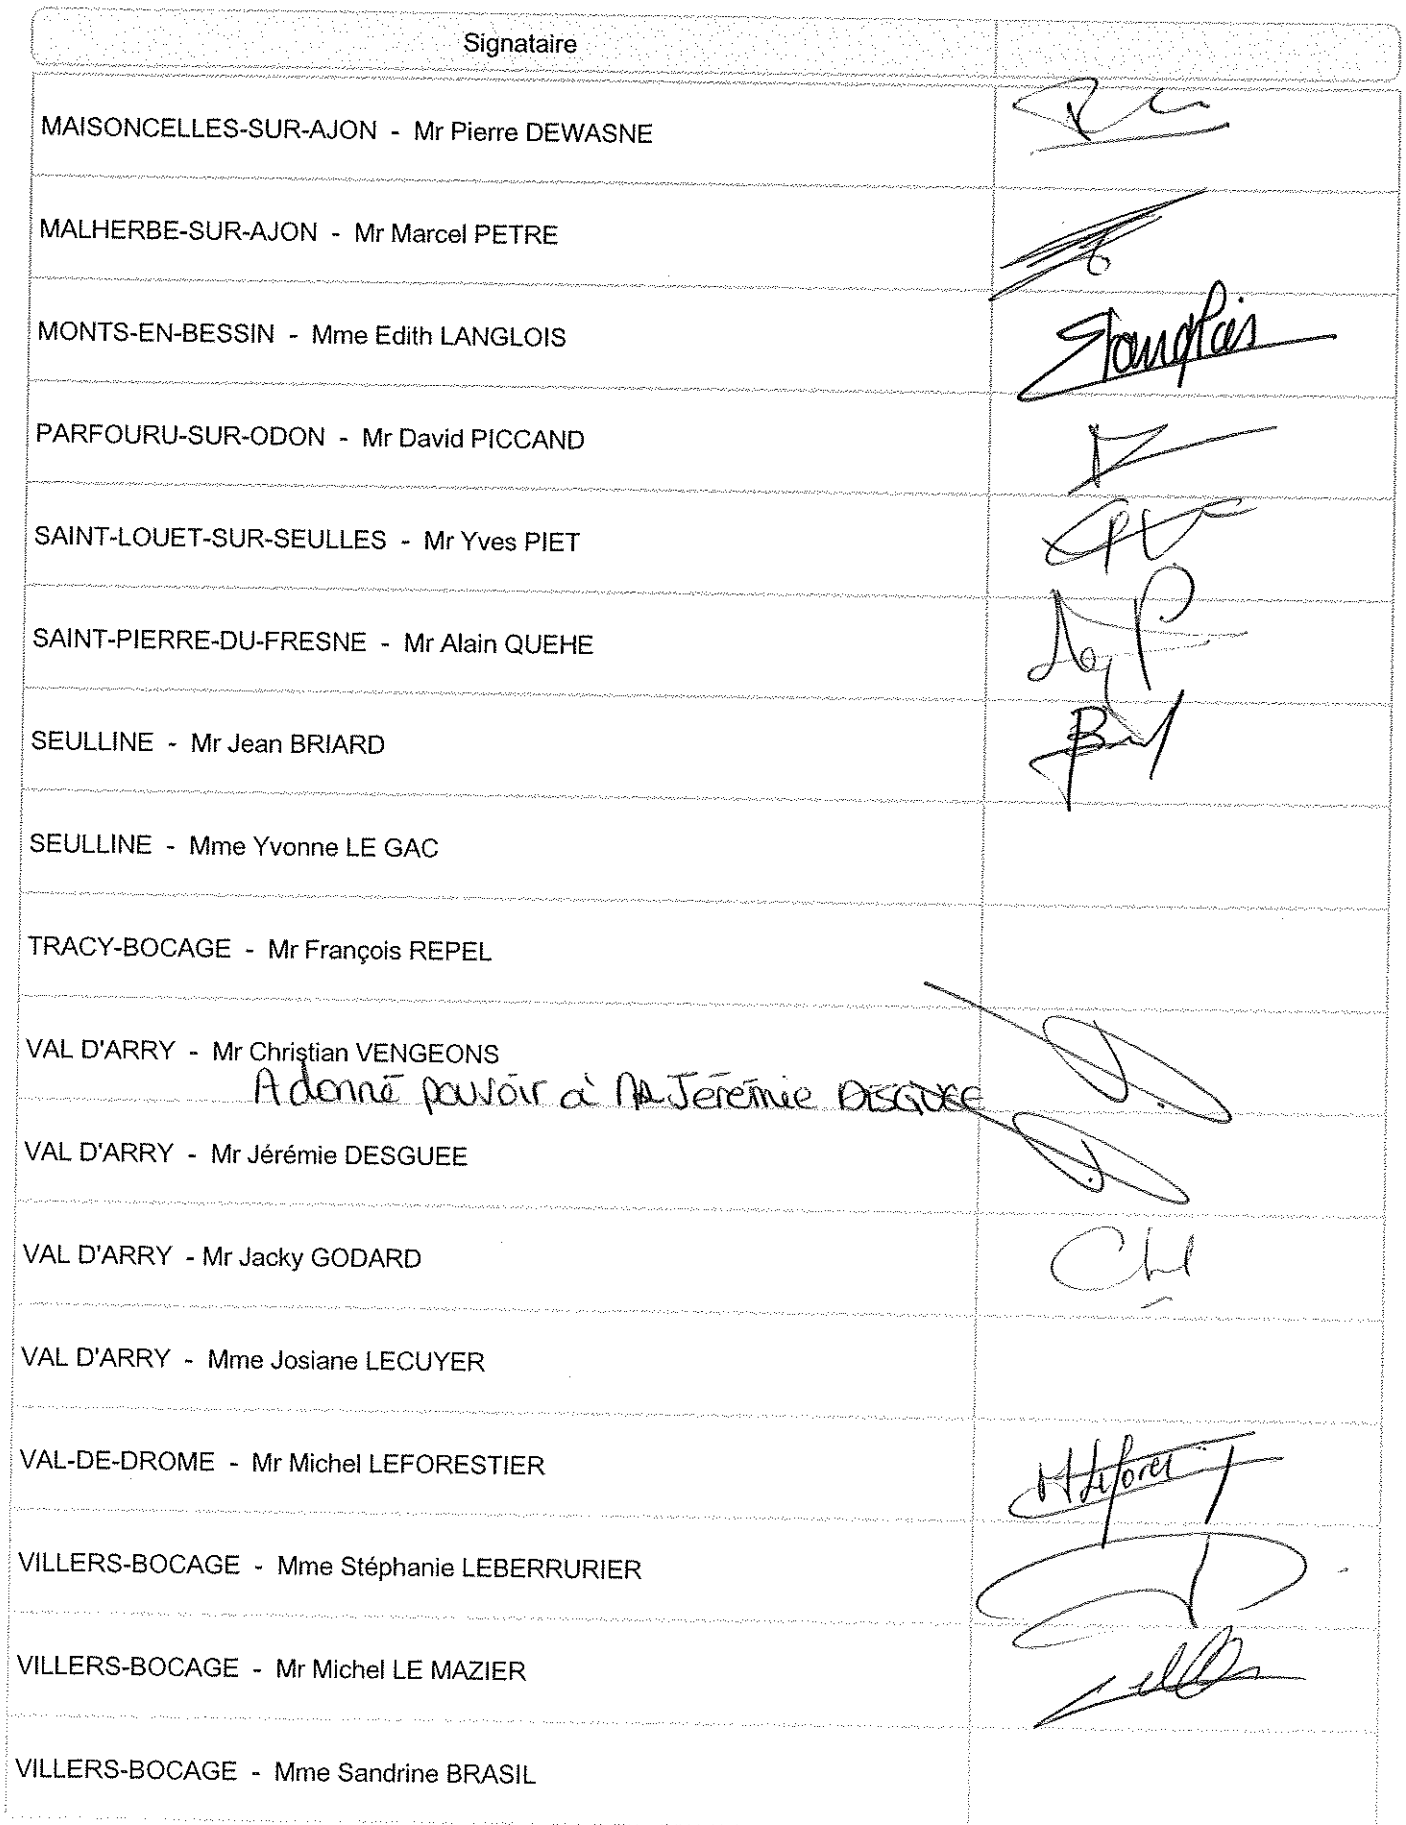 Signataire
MAISONCELLES-SUR-AJON - Mr Pierre DEWASNE
MALHERBE-SUR-AJON - Mr Marcel PETRE
MONTS-EN-BESSIN - Mme Edith LANGLOIS
PARFOURU-SUR-ODON - Mr David PICCAND
SAINT-LOUET-SUR-SEULLES - Mr Yves PIET
SAINT-PIERRE-DU-FRESNE - Mr Alain QUEHE
SEULLINE - Mr Jean BRIARD
SEULLINE - Mme Yvonne LE GAC
TRACY-BOCAGE - Mr François REPEL
VAL D'ARRY - Mr Christian VENGEONS
A donné pouvoir à Mr Jérémie DESGUEE
VAL D'ARRY - Mr Jérémie DESGUEE
VAL D'ARRY - Mr Jacky GODARD
VAL D'ARRY - Mme Josiane LECUYER
VAL-DE-DROME - Mr Michel LEFORESTIER
VILLERS-BOCAGE - Mme Stéphanie LEBERRURIER
VILLERS-BOCAGE - Mr Michel LE MAZIER
VILLERS-BOCAGE - Mme Sandrine BRASIL